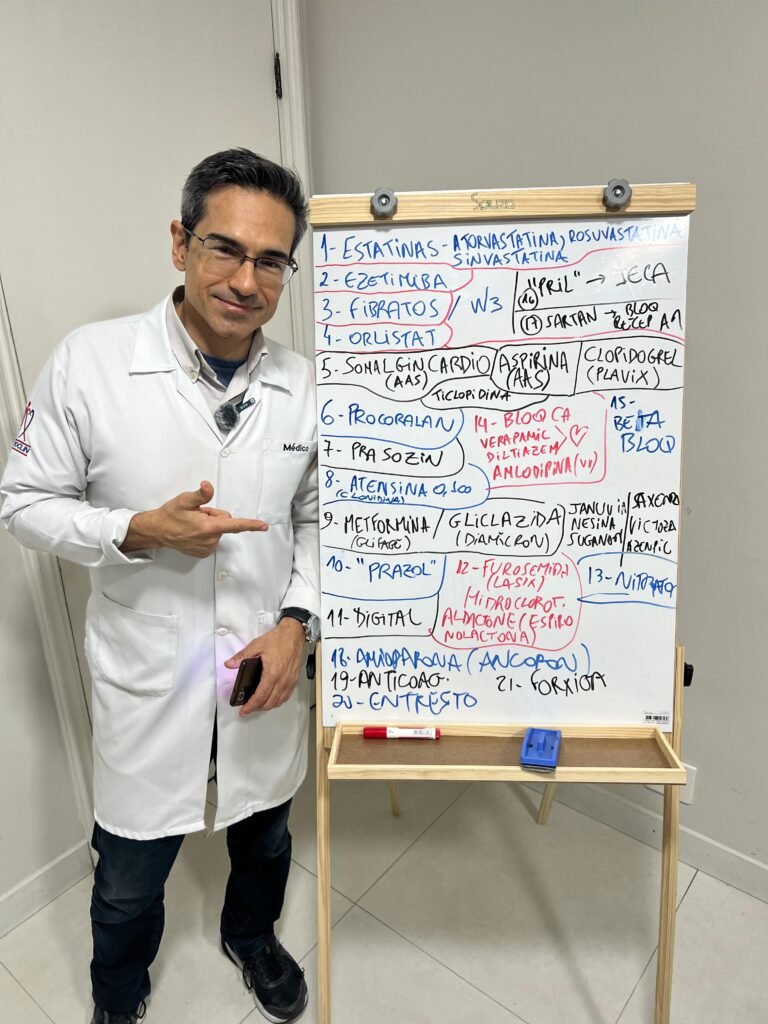 Souza
1- ESTATINAS - ATORVASTATINA, ROSUVASTATINA
SINVASTATINA
2- EZETIMIBA
3- FIBRATOS / W3
4- ORLISTAT
"PRIL" → JECA
16
17 SARTAN → BLOQ
RECEP
5- SOMALGIN CARDIO
(AAS)
ASPIRINA
(AAS)
CLOPIDOGREL
(PLAVIX)
TICLOPIDINA
6- PROCORALAN
7- PRASOZIN
8- ATENSINA 0,100
(CLONIDINA)
14- BLOQ CA
VERAPAMIL
DILTIAZEM
ANLODIPINA (VD)
15-
BETA
BLOQ
9- METFORMINA /
(GLIFAGE)
GLICLAZIDA
(DIAMICRON)
JANUVIA
NESINA
SUGANON
SAXENDA
VICTOZA
OZENPIC
10- "PRAZOL"
11- DIGITAL
12- FUROSEMIDA
(LASIX)
HIDROCLOROT.
ALDACTONE (ESPIRO
NOLACTONA)
13- NITRATO
18- AMIODARONA (ANCORON)
19- ANTICOAG.
21- FORXIGA
20- ENTRESTO
Médico